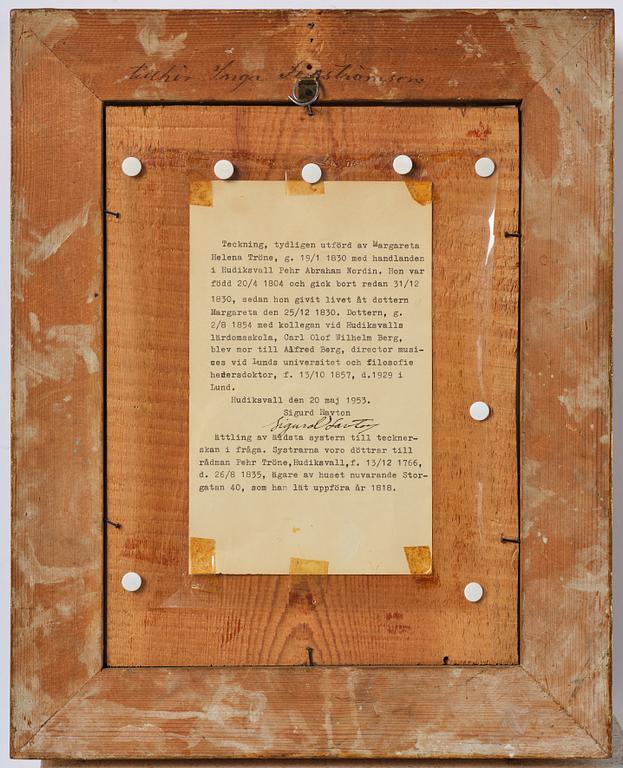 tillhör Inga
Teckning, tydligen utförd av Margareta
Helena Tröne, g. 19/1 1830 med handlanden
i Hudiksvall Pehr Abraham Nordin. Hon var
född 20/4 1804 och gick bort redan 31/12
1830, sedan hon givit livet åt dottern
Margareta den 25/12 1830. Dottern, g.
2/8 1854 med kollegan vid Hudiksvalls
lärdomsskola, Carl Olof Wilhelm Berg,
blev mor till Alfred Berg, director musi-
ces vid Lunds universitet och filosofie
hedersdoktor, f. 13/10 1857, d.1929 i
Lund.
Hudiksvall den 20 maj 1953.
Sigurd Havton
Sigurd Havton
Ättling av äldsta systern till teckner-
skan i fråga. Systrarna voro döttrar till
rådman Pehr Tröne,Hudiksvall,f. 13/12 1766,
d. 26/8 1835, ägare av huset nuvarande Stor-
gatan 40, som han lät uppföra år 1818.